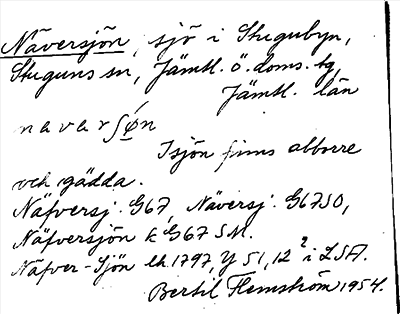 Näversjön, sjö i Stugubyn,
Stuguns sn, Jämtl. ö. doms. tg,
Jämtl. län
n a v a r ʃ ǿ n
I sjön finns abborre
och gädda.
Näfversj. G67, Näversj. G67SO,
Näfversjön k G67 SM.
Näfver-Sjön lh 1797, Y 51, 12² i LSA.
Bertil Flemström 1954.